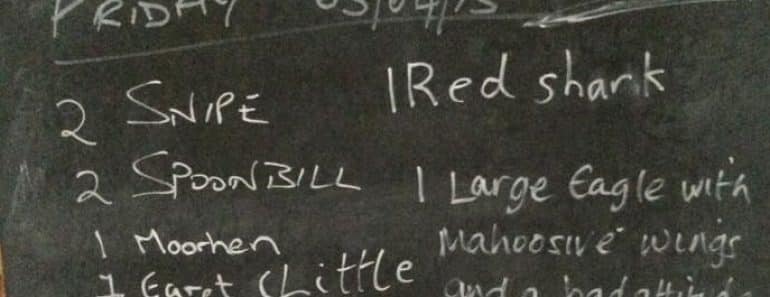 FRIDAY 05/04/13
2 SNIPE
2 SPOONBILL
1 Moorhen
1 Egret (Little
1 Red shark
1 Large Eagle with
Mahoosive wings
and a bad attitude